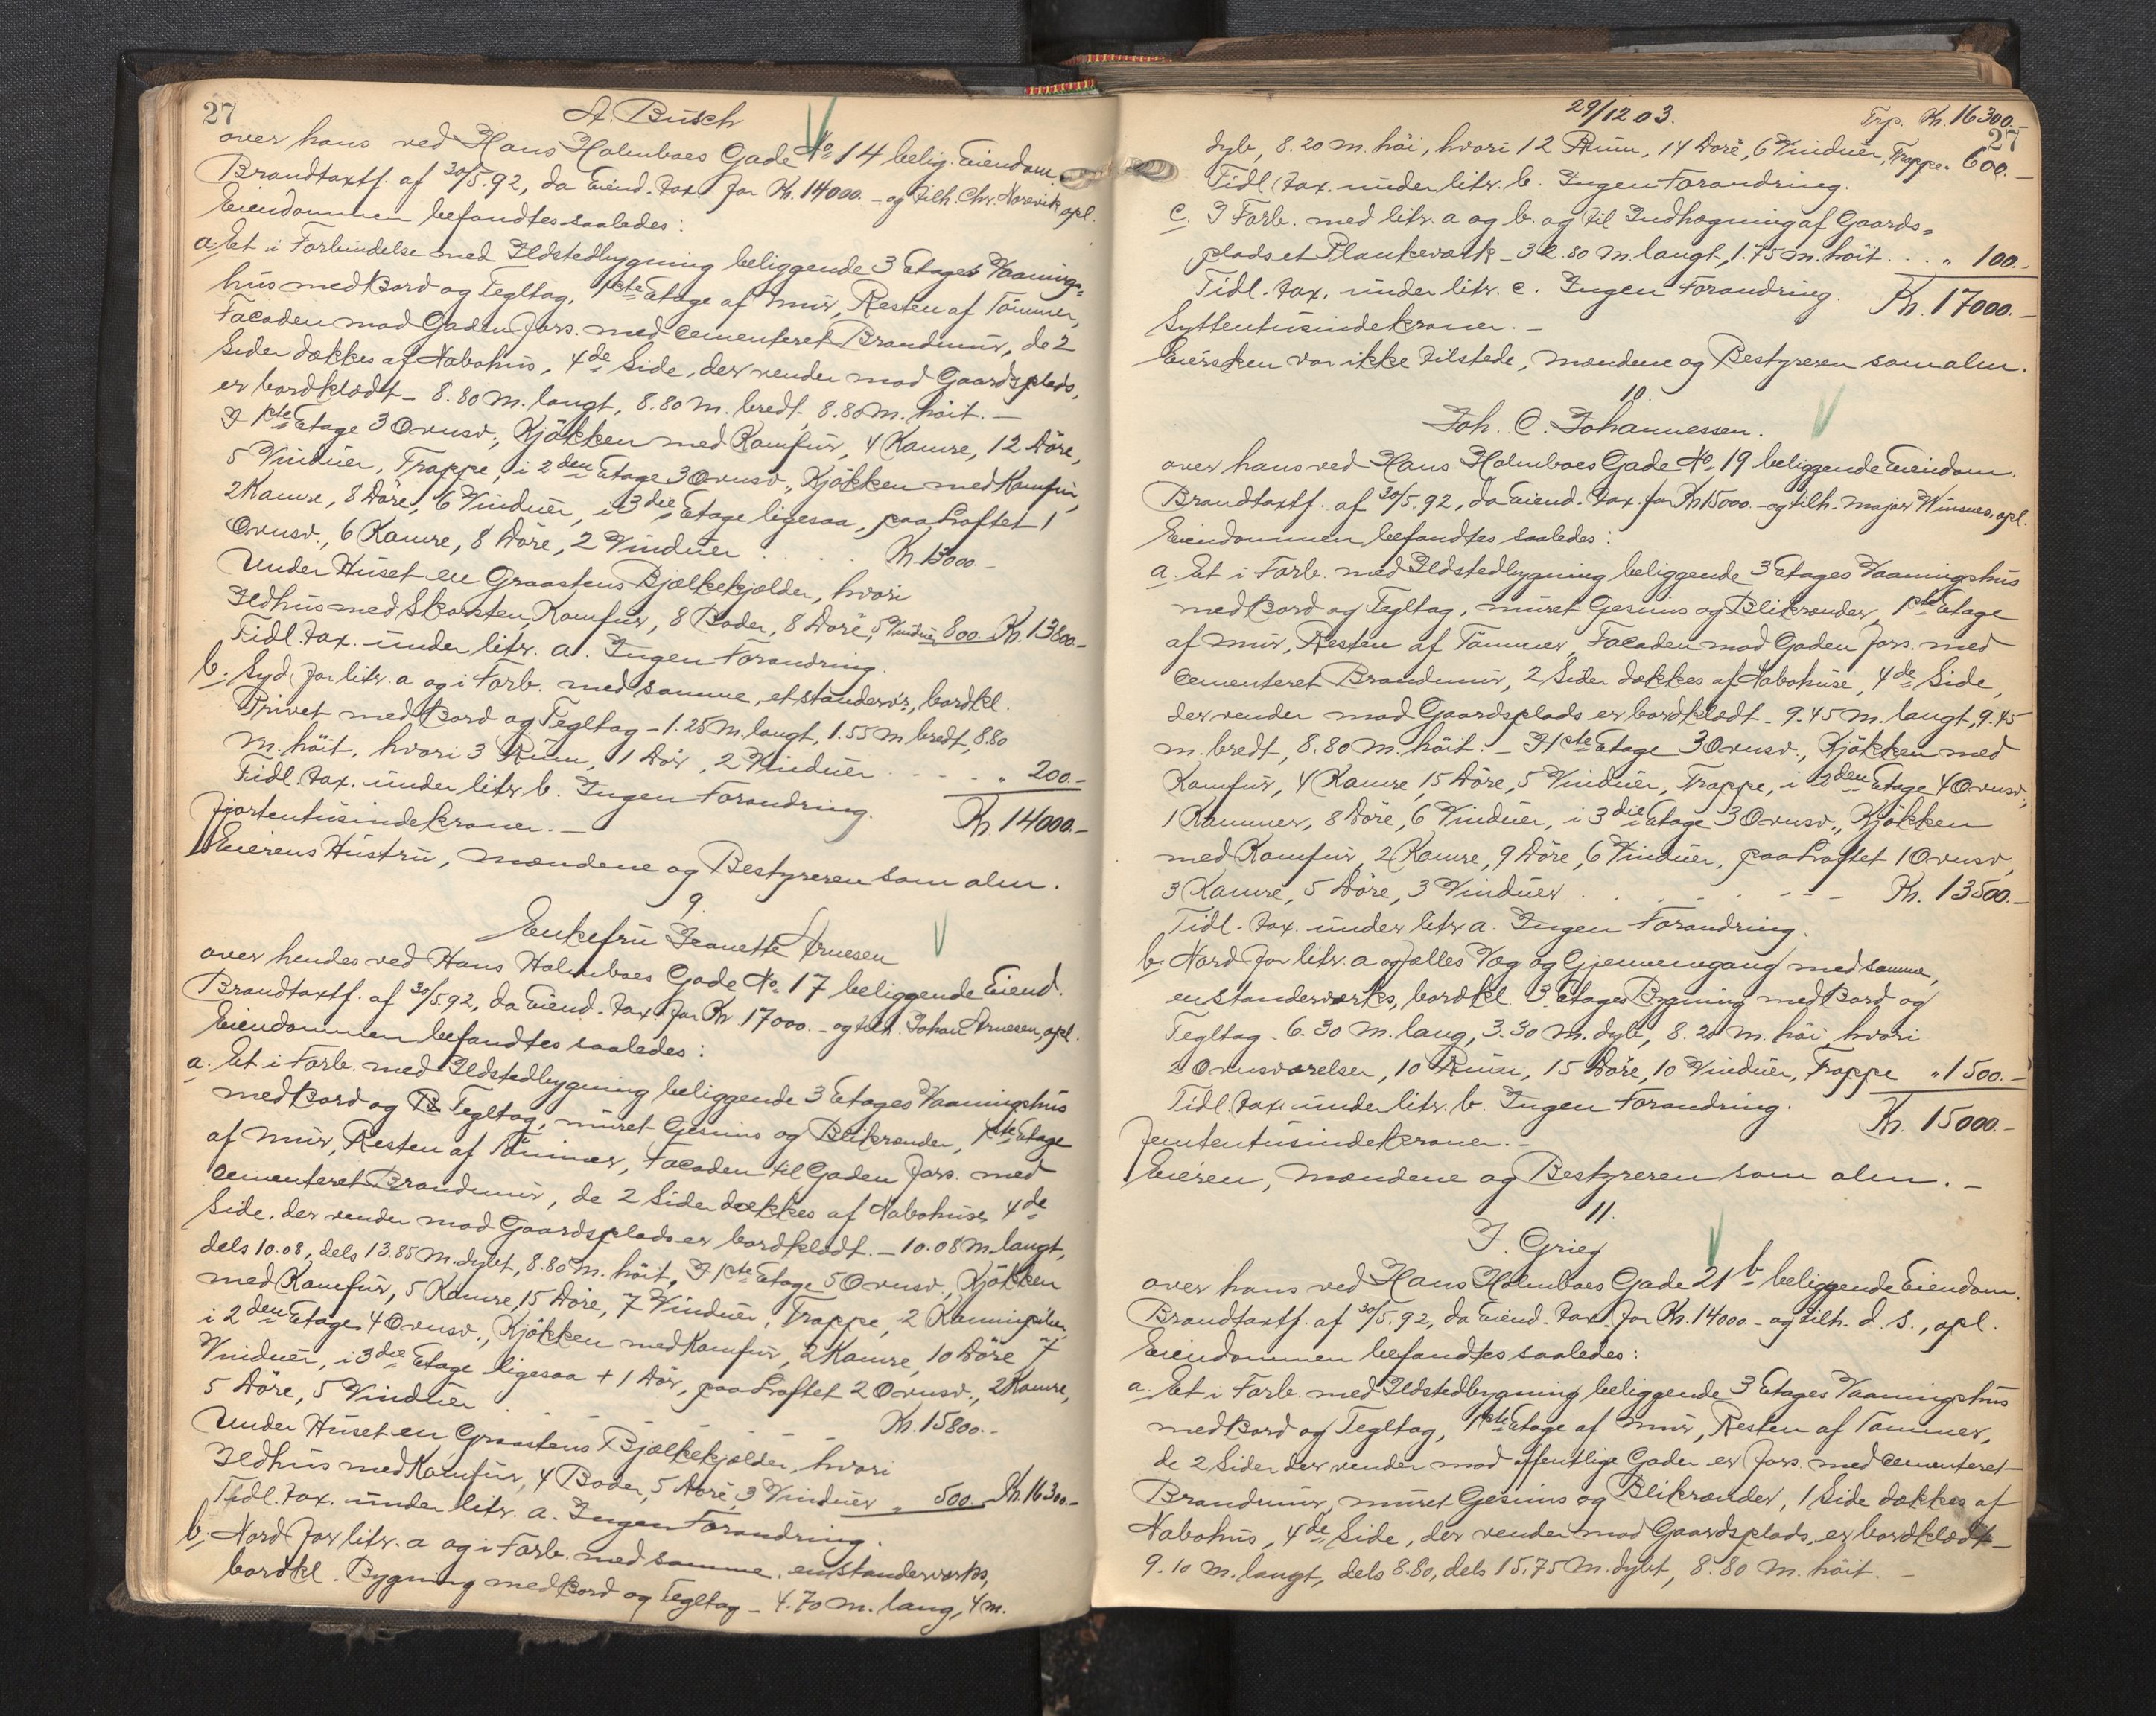 27
A. Busch
over hans ved Hans Holmboes Gade No 14 belig. Eiendom.
Brandtaxtf. af 30/5.92, da Eiend. tax. for Kr. 14000.- og tilh. Chr. Norevik, opl.
Eiendommen befandtes saaledes:
a. Et i Forbindelse med Ildstedbygning beliggende 3 Etages Vaanings=
hus med Bord og Tegltag, 1ste Etage af Mur, Resten af Tømmer,
Facaden mod Gaden fors. med cementeret Brandmur, de 2
Sider dækkes af Nabohus, 4de Side, der vender mod Gaardsplads,
er bordklædt - 8.80 M. langt, 8.80 M. bredt, 8.80 M. høit. -
I 1ste Etage 3 Ovnsv., Kjøkken med Komfur, 4 Kamre, 12 Døre,
5 Vinduer, Trappe, i 2den Etage 3 Ovnsv., Kjøkken med Komfur,
2 Kamre, 8 Døre, 6 Vinduer, i 3die Etage ligesaa, paa Loftet 1
Ovnsv., 6 Kamre, 8 Døre, 2 Vinduer . . . Kr. 13000 -
Under Huset en Graastens Bjælkekjælder, hvori
Ildhus med Skorsten, Komfur, 8 Boder, 8 Døre, 5 Vinduer 800.- Kr. 13800.-
Tidl. tax. under litr. a. Ingen Forandring.
b. Syd for litr. a og i Forb. med samme, et standerv's, bordkl.
Privet med Bord og Tegltag - 1.25 M. langt, 1.55 M bredt, 8.80
M. høit, hvori 3 Rum, 1 Dør, 2 Vinduer - - - - „ 200.-
Tidl. tax. under litr. b. Ingen Forandring. Kr. 14000.-
Fjortentusindekroner. -
Eierens Hustru, Mændene og Bestyreren som alm.
9.
Enkefru Jeanette Arnesen
over hendes ved Hans Holmboes Gade No. 17 beliggende Eiend.
Brandtaxtf. af 30/5.92, da Eiend. tax. for Kr 17000.- og tilh. Johan Arnesen, opl.
Eiendommen befandtes saaledes:
a. Et i Forb. med Ildstedbygning beliggende 3 Etages Vaaningshus
med Bord og Tegltag, muret Gesims og Blikrender, 1ste Etage
af Mur, Resten af Tømmer, Facaden til Gaden fors. med
cementeret Brandmur, de 2 Sider dækkes af Nabohuse, 4de
Side, der vender mod Gaardsplads er bordklædt. - 10.08 M. langt,
dels 10.08, dels 13.85 M. dybt, 8.80 M. høit. I 1ste Etage 5 Ovnsv., Kjøkken
med Komfur, 5 Kamre, 15 Døre, 7 Vinduer, Trappe, 2
i 2den Etage 4 Ovnsv., Kjøkken med Komfur, 2 Kamre, 10 Døre 7
Vinduer, i 3die Etage ligesaa + 1 Dør, paa Loftet 2 Ovnsv., 2 Kamre,
5 Døre, 5 Vinduer . . - - Kr. 15800.-
Under Huset en Graastens Bjælkekjælder, hvori
Ildhus med Komfur, 4 Boder, 5 Døre, 3 Vinduer „ 500.- Kr. 16300.-
Tidl. tax. under litr. a. Ingen Forandring.
b. Nord for litr. a og i Forb. med samme, en standerværks,
bordkl. Bygning med Bord og Tegltag - 4.70 M. lang, 4 M.
29/12 03. Trp. Kr. 16300.-
27
dyb, 8.20 M. høi, hvori 12 Rum, 14 Døre, 6 Vinduer, Trappe - 600.-
Tidl. tax. under litr. b. Ingen Forandring.
c. I Forb. med litr. a og b. og til Indhegning af Gaards=
plads et Plankeværk - 32.80 M. langt, 1.75 M. høit. . . „ 100.-
Tidl. tax. under litr. c. Ingen Forandring. Kr. 17000.-
Syttentusindekroner. -
Eiersken var ikke tilstede, Mændene og Bestyreren som alm.
10.
Joh. C. Johannessen.
over hans ved Hans Holmboes Gade No. 19 beliggende Eiendom.
Brandtaxtf. af 30/5.92, da Eiend. tax. for Kr 15000.- og tilh. Major Winsnes, opl.
Eiendommen befandtes saaledes:
a. Et i Forb. med Ildstedbygning beliggende 3 Etages Vaaningshus
med Bord og Tegltag, muret Gesims og Blikrender, 1ste Etage
af Mur, Resten af Tømmer, Facaden mod Gaden fors. med
cementeret Brandmur, 2 Sider dækkes af Nabohuse, 4de Side,
der vender mod Gaardsplads er bordklædt - 9.45 M. langt, 9.45
M. bredt, 8.80 M. høit. - I 1ste Etage 3 Ovnsv., Kjøkken med
Komfur, 4 Kamre, 15 Døre, 5 Vinduer, Trappe, i 2den Etage 4 Ovnsv.,
1 Kammer, 8 Døre, 6 Vinduer, i 3die Etage 3 Ovnsv., Kjøkken
med Komfur, 2 Kamre, 9 Døre, 6 Vinduer, paa Loftet 1 Ovnsv,
3 Kamre, 5 Døre, 3 Vinduer . . . - - - Kr. 13500.-
Tidl. tax. under litr a. Ingen Forandring.
b. Nord for litr. a og fælles Væg og Gjennemgang med samme,
en standerværks, bordkl. 3 Etages Bygning med Bord og
Tegltag - 6.30 M. lang, 3.30 M. dyb, 8.20 M. høi, hvori
2 Ovnsværelser, 10 Rum, 15 Døre, 10 Vinduer, Trappe „ 1500.-
Tidl. tax. under litr. b. Ingen Forandring. Kr. 15000.-
Femtentusindekroner. -
Eieren, Mændene og Bestyreren som alm. -
11.
J. Grieg
over hans ved Hans Holmboes Gade 21 b beliggende Eiendom.
Brandtaxtf. af 30/5.92, da Eiend. tax. for Kr. 14000 - og tilh. d. s., opl.
Eiendommen befandtes saaledes:
a. Et i Forb. med Ildstedbygning beliggende 3 Etages Vaaningshus
med Bord og Tegltag, 1ste Etage af Mur, Resten af Tømmer,
de 2 Sider der vender mod offentlige Gader er fors. med cementeret
Brandmur, muret Gesims og Blikrender, 1 Side dækkes af
Nabohus, 4de Side, der vender mod Gaardsplads, er bordklædt -
9.10 M. langt, dels 8.80, dels 15.75 M. dybt, 8.80 M. høit. -